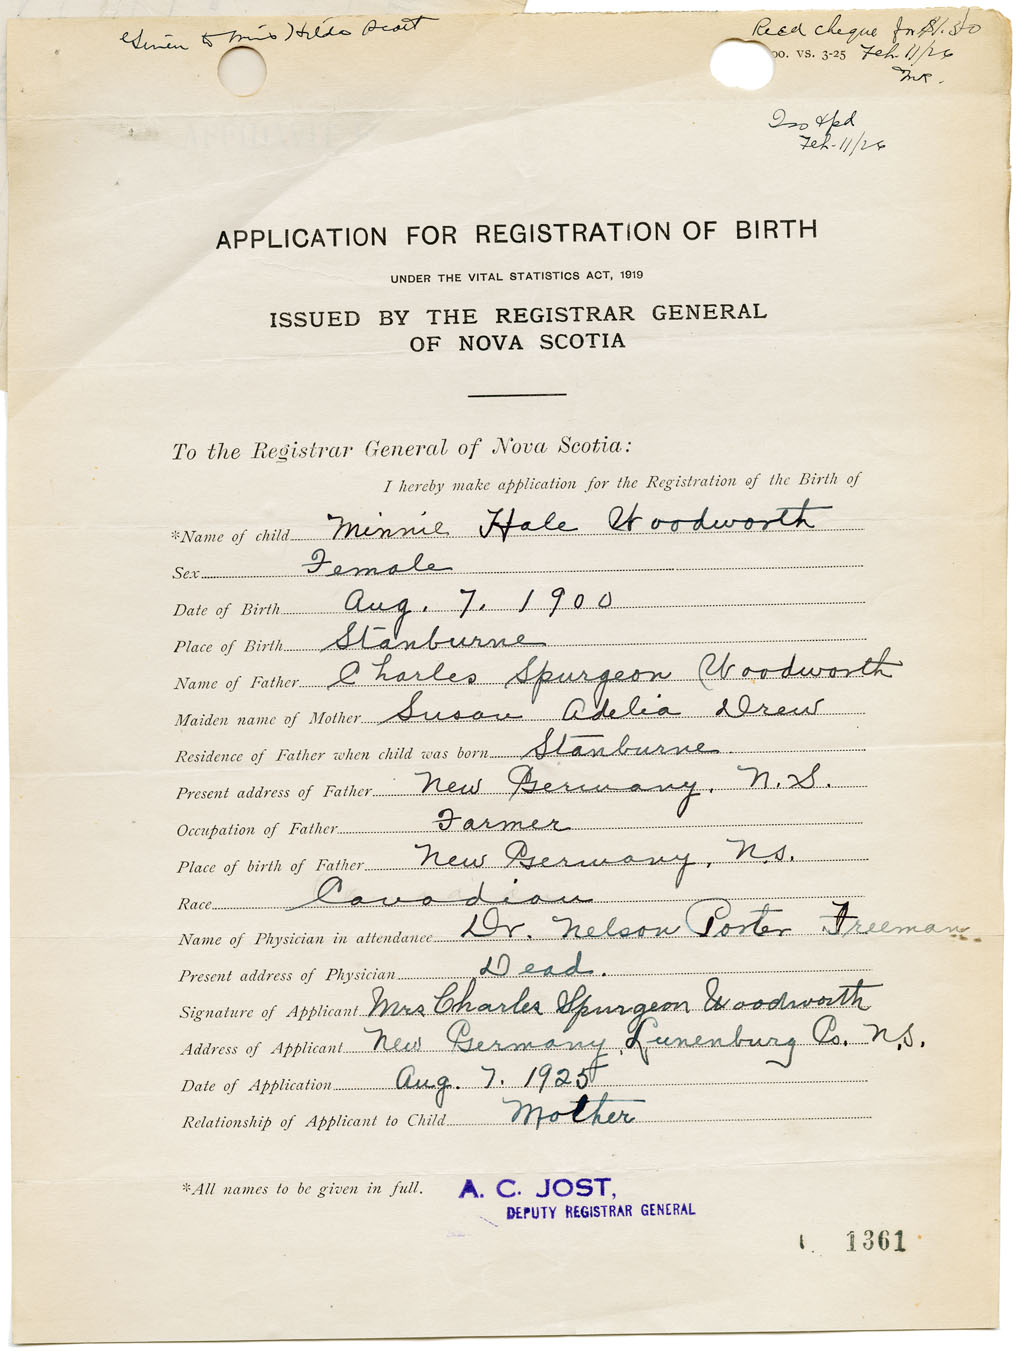 Given to Miss Hilda Scott
Recd cheque for $1.50
00. VS. 3-25 Feb. 11/26
Feb-11/26
APPLICATION FOR REGISTRATION OF BIRTH
UNDER THE VITAL STATISTICS ACT, 1919
ISSUED BY THE REGISTRAR GENERAL
OF NOVA SCOTIA
To the Registrar General of Nova Scotia:
I hereby make application for the Registration of the Birth of
*Name of child Minnie Hale Woodworth
Sex Female
Date of Birth Aug. 7. 1900
Place of Birth Stanburne
Name of Father Charles Spurgeon Woodworth
Maiden name of Mother Susan Adelia Drew
Residence of Father when child was born Stanburne
Present address of Father New Germany, N.S.
Occupation of Father Farmer
Place of birth of Father New Germany, N.S.
Race Canadian
Name of Physician in attendance Dr. Nelson Porter Freeman
Present address of Physician Dead.
Signature of Applicant Mrs Charles Spurgeon Woodworth
Address of Applicant New Germany, Lunenburg Co. N.S.
Date of Application Aug. 7. 1925
Relationship of Applicant to Child Mother
*All names to be given in full.
A. C. JOST,
DEPUTY REGISTRAR GENERAL
1361